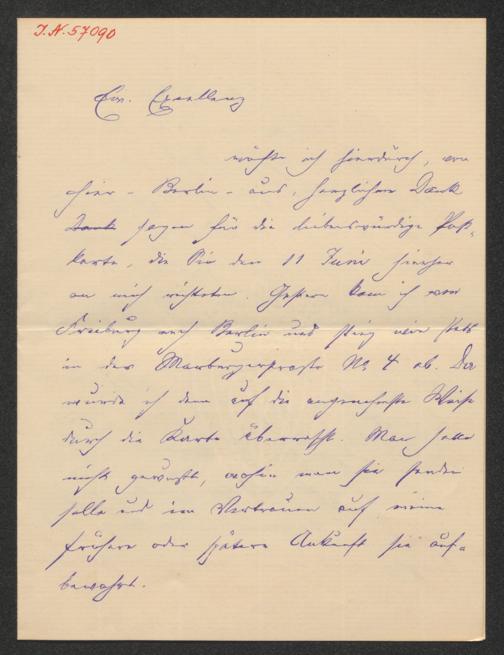 J. N. 57090
Ew. Excellenz
möchte ich hierdurch, von
hier - Berlin - aus, herzlichen Dank
Dank sagen für die liebenswürdige Post-
karte, die Sie den 11 Juni hierher
an mich richteten. Gestern kam ich von
Freiburg nach Berlin und stieg wie stets
in der Marburgerstraße No 4 ab. Da
wurde ich denn auf die angenehmste Weise
durch die Karte überrascht. Man hatte
nicht gewußt, wohin man sie senden
solle und im Vertrauen auf meine
frühere oder spätere Ankunft sie auf-
bewahrt.